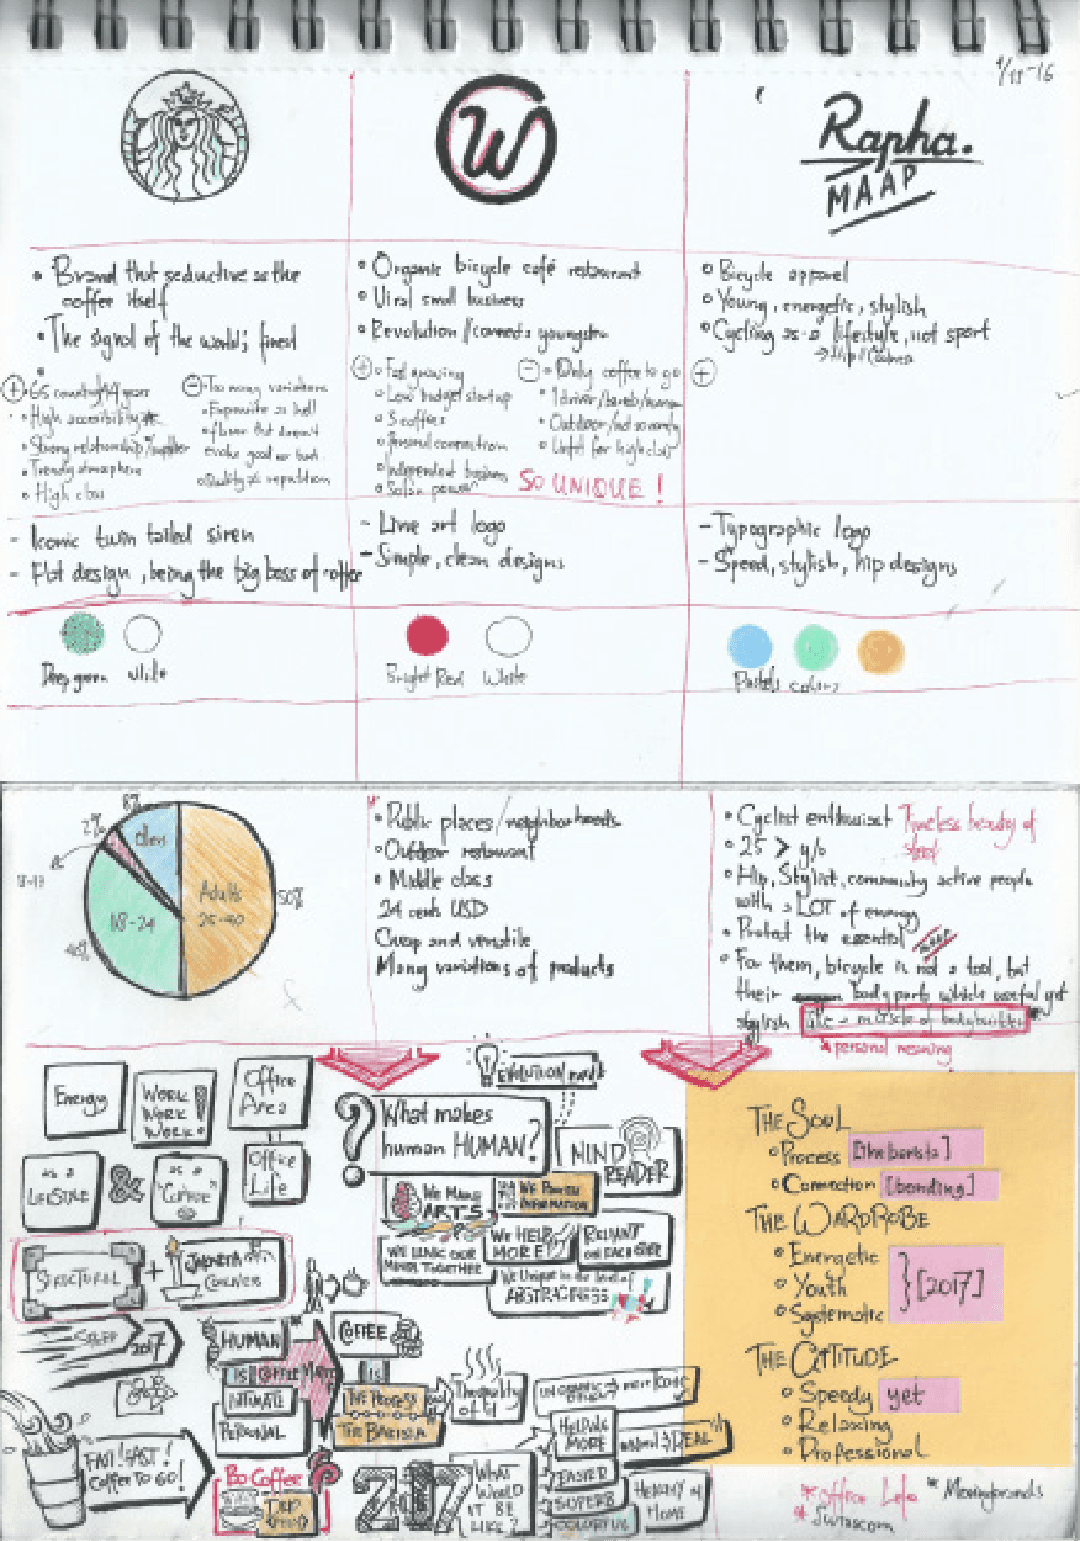 Rapha.
MAAP
• Brand that seductive as the
coffee itself
• The signal of the world; finest
+
• High accesibility
• Strong relationship/supplier
• Trendy atmosphere
• High class
- • Too many variations
• Expensive as hell
• flavor that doesn't
evoke good or bad
• Quality vs reputation
- Iconic twin tailed siren
- Flat design, being the big boss of coffee
Deep green White
• Organic bicycle café restaurant
• Viral small business
• Revolution/connects youngster
+ • Fast growing
• Low budget startup
• 3 coffees
• Personal connection
• Independent business
• Solar power
- • Only coffee to go
• Outdoor/
• Unfit for high class
SO UNIQUE!
- Line art logo
- Simple, clean designs
Bright Red White
• Bicycle apparel
• Young, energetic, stylish
• Cycling as a lifestyle, not sport
+
- Typographic logo
- Speed, stylish, hip designs
Pastels colors
8%
2%
Adults
25-40
50%
18-24
40%
• Public places/neighborhoods
• Outdoor restaurant
• Middle class
24 cents USD
Cheap and versatile
Many variations of products
• Cyclist enthusiast Timeless beauty of
steel
• 25 > y/o
• Hip, Stylist, community active people
with a LOT of energy
• Protect the essential MAAP
• For them, bicycle is not a tool, but
their body parts which useful yet
stylish like a muscle of bodybuilder
* personal meaning
Energy
WORK
WORK
WORK!
Office
Area
as a
LIFESTYLE
&
as a
"COFFEE"
Office
Life
STRUCTURAL
+
JAKARTA
2017
FAST! FAST!
Coffee TO GO!
HUMAN
IS COFFEE
INTIMATE
PERSONAL
BoCoffee
EVOLUTION
? What makes
human HUMAN?
MIND
READER
WE MAKE
ARTS
INFORMATION
WE LINK OUR
MINDS TOGETHER
WE HELP
MORE
RELIANT
ON EACH OTHER
ABSTRACTNESS
COFFEE
IS
THE PROCESS
THE BARISTA
The quality
of it
2017
WHAT
WOULD
IT BE
LIKE?
HELPING
MORE
SUPERB
COLORFUL
HOME
THE SOUL
• Process [the barista]
• Connection [bonding]
THE WARDROBE
• Energetic
• Youth
• Systematic
} [2017]
THE ATTITUDE
• Speedy yet
• Relaxing
• Professional
* Office Life
* Swisscom
* Movingbrands